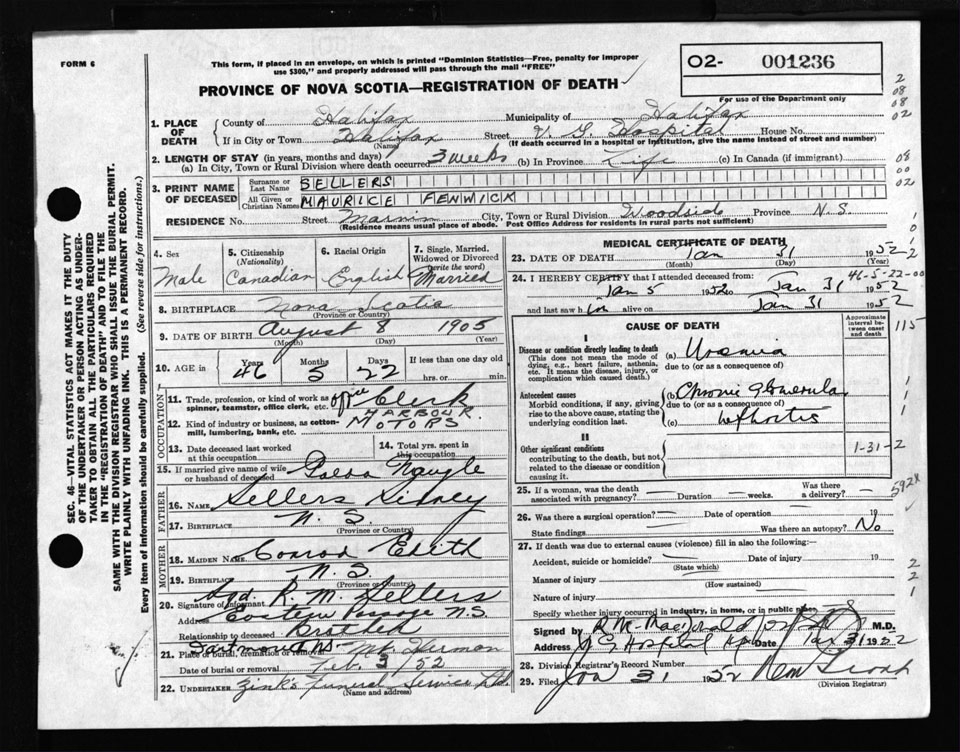 FORM 6
This form, if placed in an envelope, on which is printed "Dominion Statistics—Free, penalty for improper
use $300," and properly addressed will pass through the mail "FREE"
O2- 001236
For use of the Department only
PROVINCE OF NOVA SCOTIA—REGISTRATION OF DEATH
1. PLACE OF DEATH
County of Halifax Municipality of Halifax
If in City or Town Halifax Street V. G. Hospital House No.
(Name) (If death occurred in a hospital or institution, give the name instead of street and number)
2. LENGTH OF STAY (in years, months and days)
(a) In City, Town or Rural Division where death occurred 3 weeks (b) In Province Life (c) In Canada (if immigrant)
3. PRINT NAME OF DECEASED
Surname or Last Name SELLERS
All Given or Christian Names MAURICE FENWICK
RESIDENCE No. Street City, Town or Rural Division Woodside Province N.S.
(Residence means usual place of abode. Post Office Address for residents in rural parts not sufficient)
4. Sex Male
5. Citizenship (Nationality) Canadian
6. Racial Origin English
7. Single, Married, Widowed or Divorced (write the word) Married
8. BIRTHPLACE Nova Scotia
(Province or Country)
9. DATE OF BIRTH August 8 1905
(Month) (Day) (Year)
10. AGE in Years 46 Months 5 Days 22 If less than one day old
hrs. or min.
11. Trade, profession, or kind of work as spinner, teamster, office clerk, etc. office Clerk
12. Kind of industry or business, as cotton-mill, lumbering, bank, etc. HARBOUR MOTORS
13. Date deceased last worked at this occupation
14. Total yrs. spent in this occupation
15. If married give name of wife or husband of deceased Naugle
FATHER
16. NAME Sellers Sidney
17. BIRTHPLACE N. S.
(Province or Country)
MOTHER
18. MAIDEN NAME Conrod Edith
19. BIRTHPLACE N. S.
(Province or Country)
20. Signature of informant Sgd. R. M. Sellers
Address Eastern Passage N.S.
Relationship to deceased Brother
Dartmouth NS
21. Place of burial, cremation or removal Mt. Herman
Date of burial or removal Feb. 3/52
22. UNDERTAKER Zinks Funeral Service Ltd.
(Name and address)
MEDICAL CERTIFICATE OF DEATH
23. DATE OF DEATH Jan 31 1952
(Month) (Day) (Year)
24. I HEREBY CERTIFY that I attended deceased from: 46-5-22-00
Jan 5 1952 to Jan 31 1952
and last saw him alive on Jan 31 1952
CAUSE OF DEATH
Approximate interval between onset and death
I
Disease or condition directly leading to death
(This does not mean the mode of dying, e.g., heart failure, asthenia, etc. It means the disease, injury, or complication which caused death.)
(a) Uremia
due to (or as a consequence of)
Antecedent causes
Morbid conditions, if any, giving rise to the above cause, stating the underlying condition last.
(b) Chronic Glomerular
due to (or as a consequence of)
(c) nephritis
II
Other significant conditions
contributing to the death, but not related to the disease or condition causing it.
1-31-2
25. If a woman, was the death associated with pregnancy? Duration weeks. Was there a delivery?
26. Was there a surgical operation? Date of operation 19
State findings Was there an autopsy? No
27. If death was due to external causes (violence) fill in also the following:—
Accident, suicide or homicide? Date of injury 19
(State which)
Manner of injury
(How sustained)
Nature of injury
Specify whether injury occurred in industry, in home, or in public place
Signed by R M. MacDonald M.D.
Address V G Hospital Date Jan 31 1952
28. Division Registrar's Record Number
29. Filed Jan 31 1952
(Division Registrar)
SEC. 46—VITAL STATISTICS ACT MAKES IT THE DUTY
OF THE UNDERTAKER OR PERSON ACTING AS UNDER-
TAKER TO OBTAIN ALL THE PARTICULARS REQUIRED
IN THE "REGISTRATION OF DEATH" AND TO FILE THE
SAME WITH THE DIVISION REGISTRAR WHO SHALL ISSUE THE BURIAL PERMIT.
WRITE PLAINLY WITH UNFADING INK. THIS IS A PERMANENT RECORD.
Every item of information should be carefully supplied. (See reverse side for instructions.)